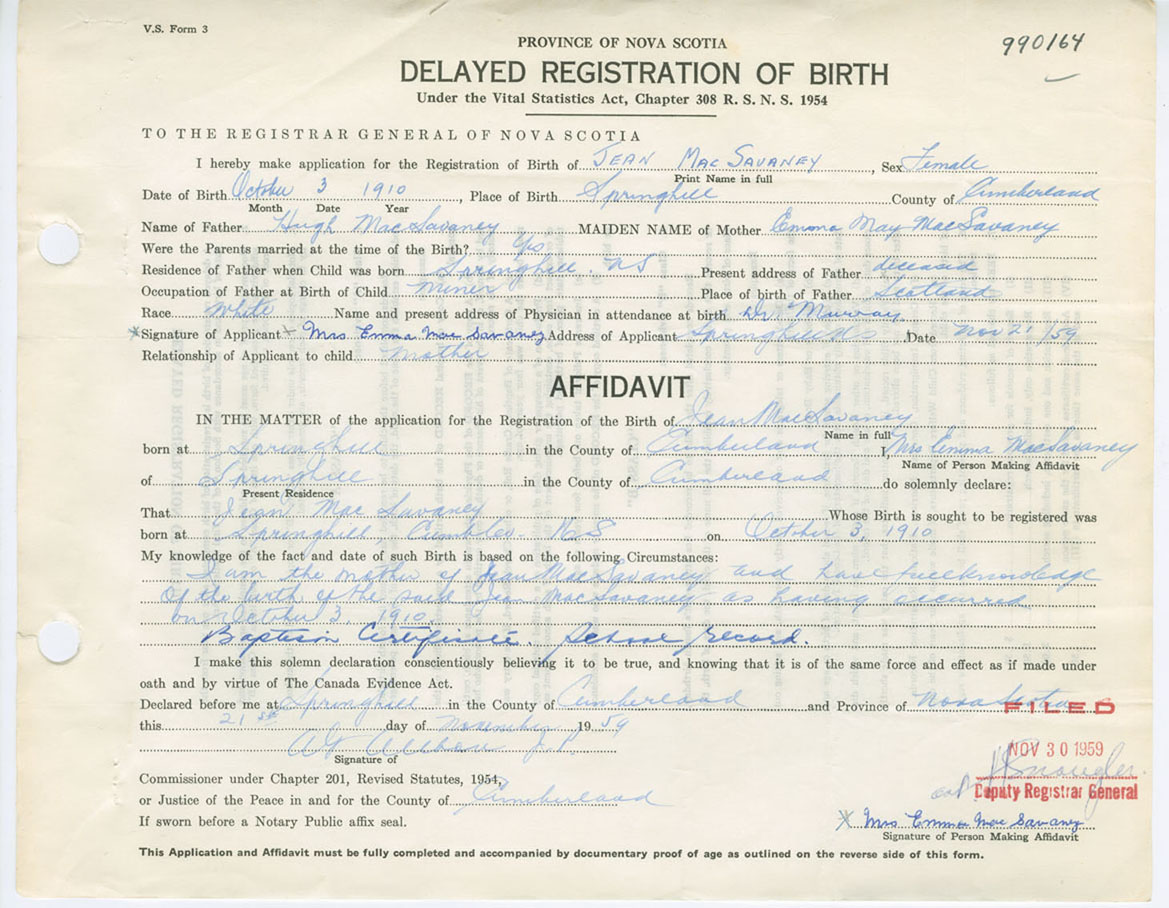 V.S. Form 3
990164
PROVINCE OF NOVA SCOTIA
DELAYED REGISTRATION OF BIRTH
Under the Vital Statistics Act, Chapter 308 R. S. N. S. 1954
TO THE REGISTRAR GENERAL OF NOVA SCOTIA
I hereby make application for the Registration of Birth of JEAN MAC SAVANEY, Sex Female
Print Name in full
Date of Birth October 3 1910, Place of Birth Springhill County of Cumberland
Month Date Year
Name of Father Hugh MacSavaney MAIDEN NAME of Mother Emma May MacSavaney
Were the Parents married at the time of the Birth? Yes
Residence of Father when Child was born Springhill. NS Present address of Father deceased
Occupation of Father at Birth of Child Miner Place of birth of Father Scotland
Race White Name and present address of Physician in attendance at birth Dr Murray
Signature of Applicant Mrs. Emma Mac Savaney Address of Applicant Springhill NS Date Nov 21/59
Relationship of Applicant to child Mother
AFFIDAVIT
IN THE MATTER of the application for the Registration of the Birth of Jean MacSavaney
Name in full
born at Springhill in the County of Cumberland I, Mrs Emma MacSavaney
Name of Person Making Affidavit
of Springhill in the County of Cumberland do solemnly declare:
Present Residence
That Jean Mac Savaney Whose Birth is sought to be registered was
born at Springhill, N S on October 3, 1910
My knowledge of the fact and date of such Birth is based on the following Circumstances:
I am the mother of Jean MacSavaney and have full knowledge
of the birth of the said Jean MacSavaney as having occurred
on October 3, 1910.
Baptism Certificate. School record.
I make this solemn declaration conscientiously believing it to be true, and knowing that it is of the same force and effect as if made under
oath and by virtue of The Canada Evidence Act.
Declared before me at Springhill in the County of Cumberland and Province of Nova Scotia
FILED
this 21st day of November 1959
J.P.
Signature of
NOV 30 1959
Deputy Registrar General
Commissioner under Chapter 201, Revised Statutes, 1954,
or Justice of the Peace in and for the County of Cumberland
If sworn before a Notary Public affix seal.
Mrs Emma Mac Savaney
Signature of Person Making Affidavit
This Application and Affidavit must be fully completed and accompanied by documentary proof of age as outlined on the reverse side of this form.